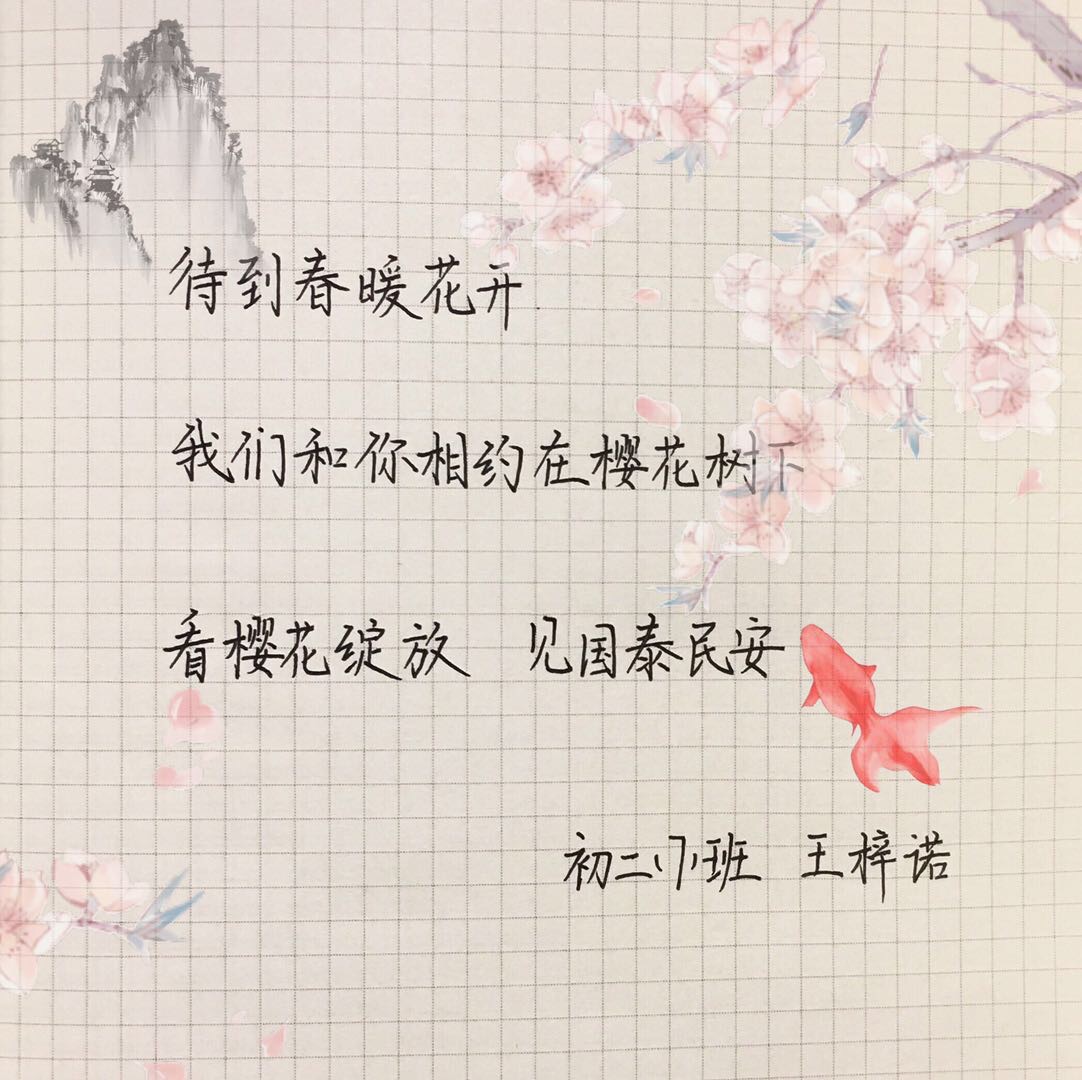 待到春暖花开
我们和你相约在樱花树下
看樱花绽放 见国泰民安
初二(7)班 王梓诺